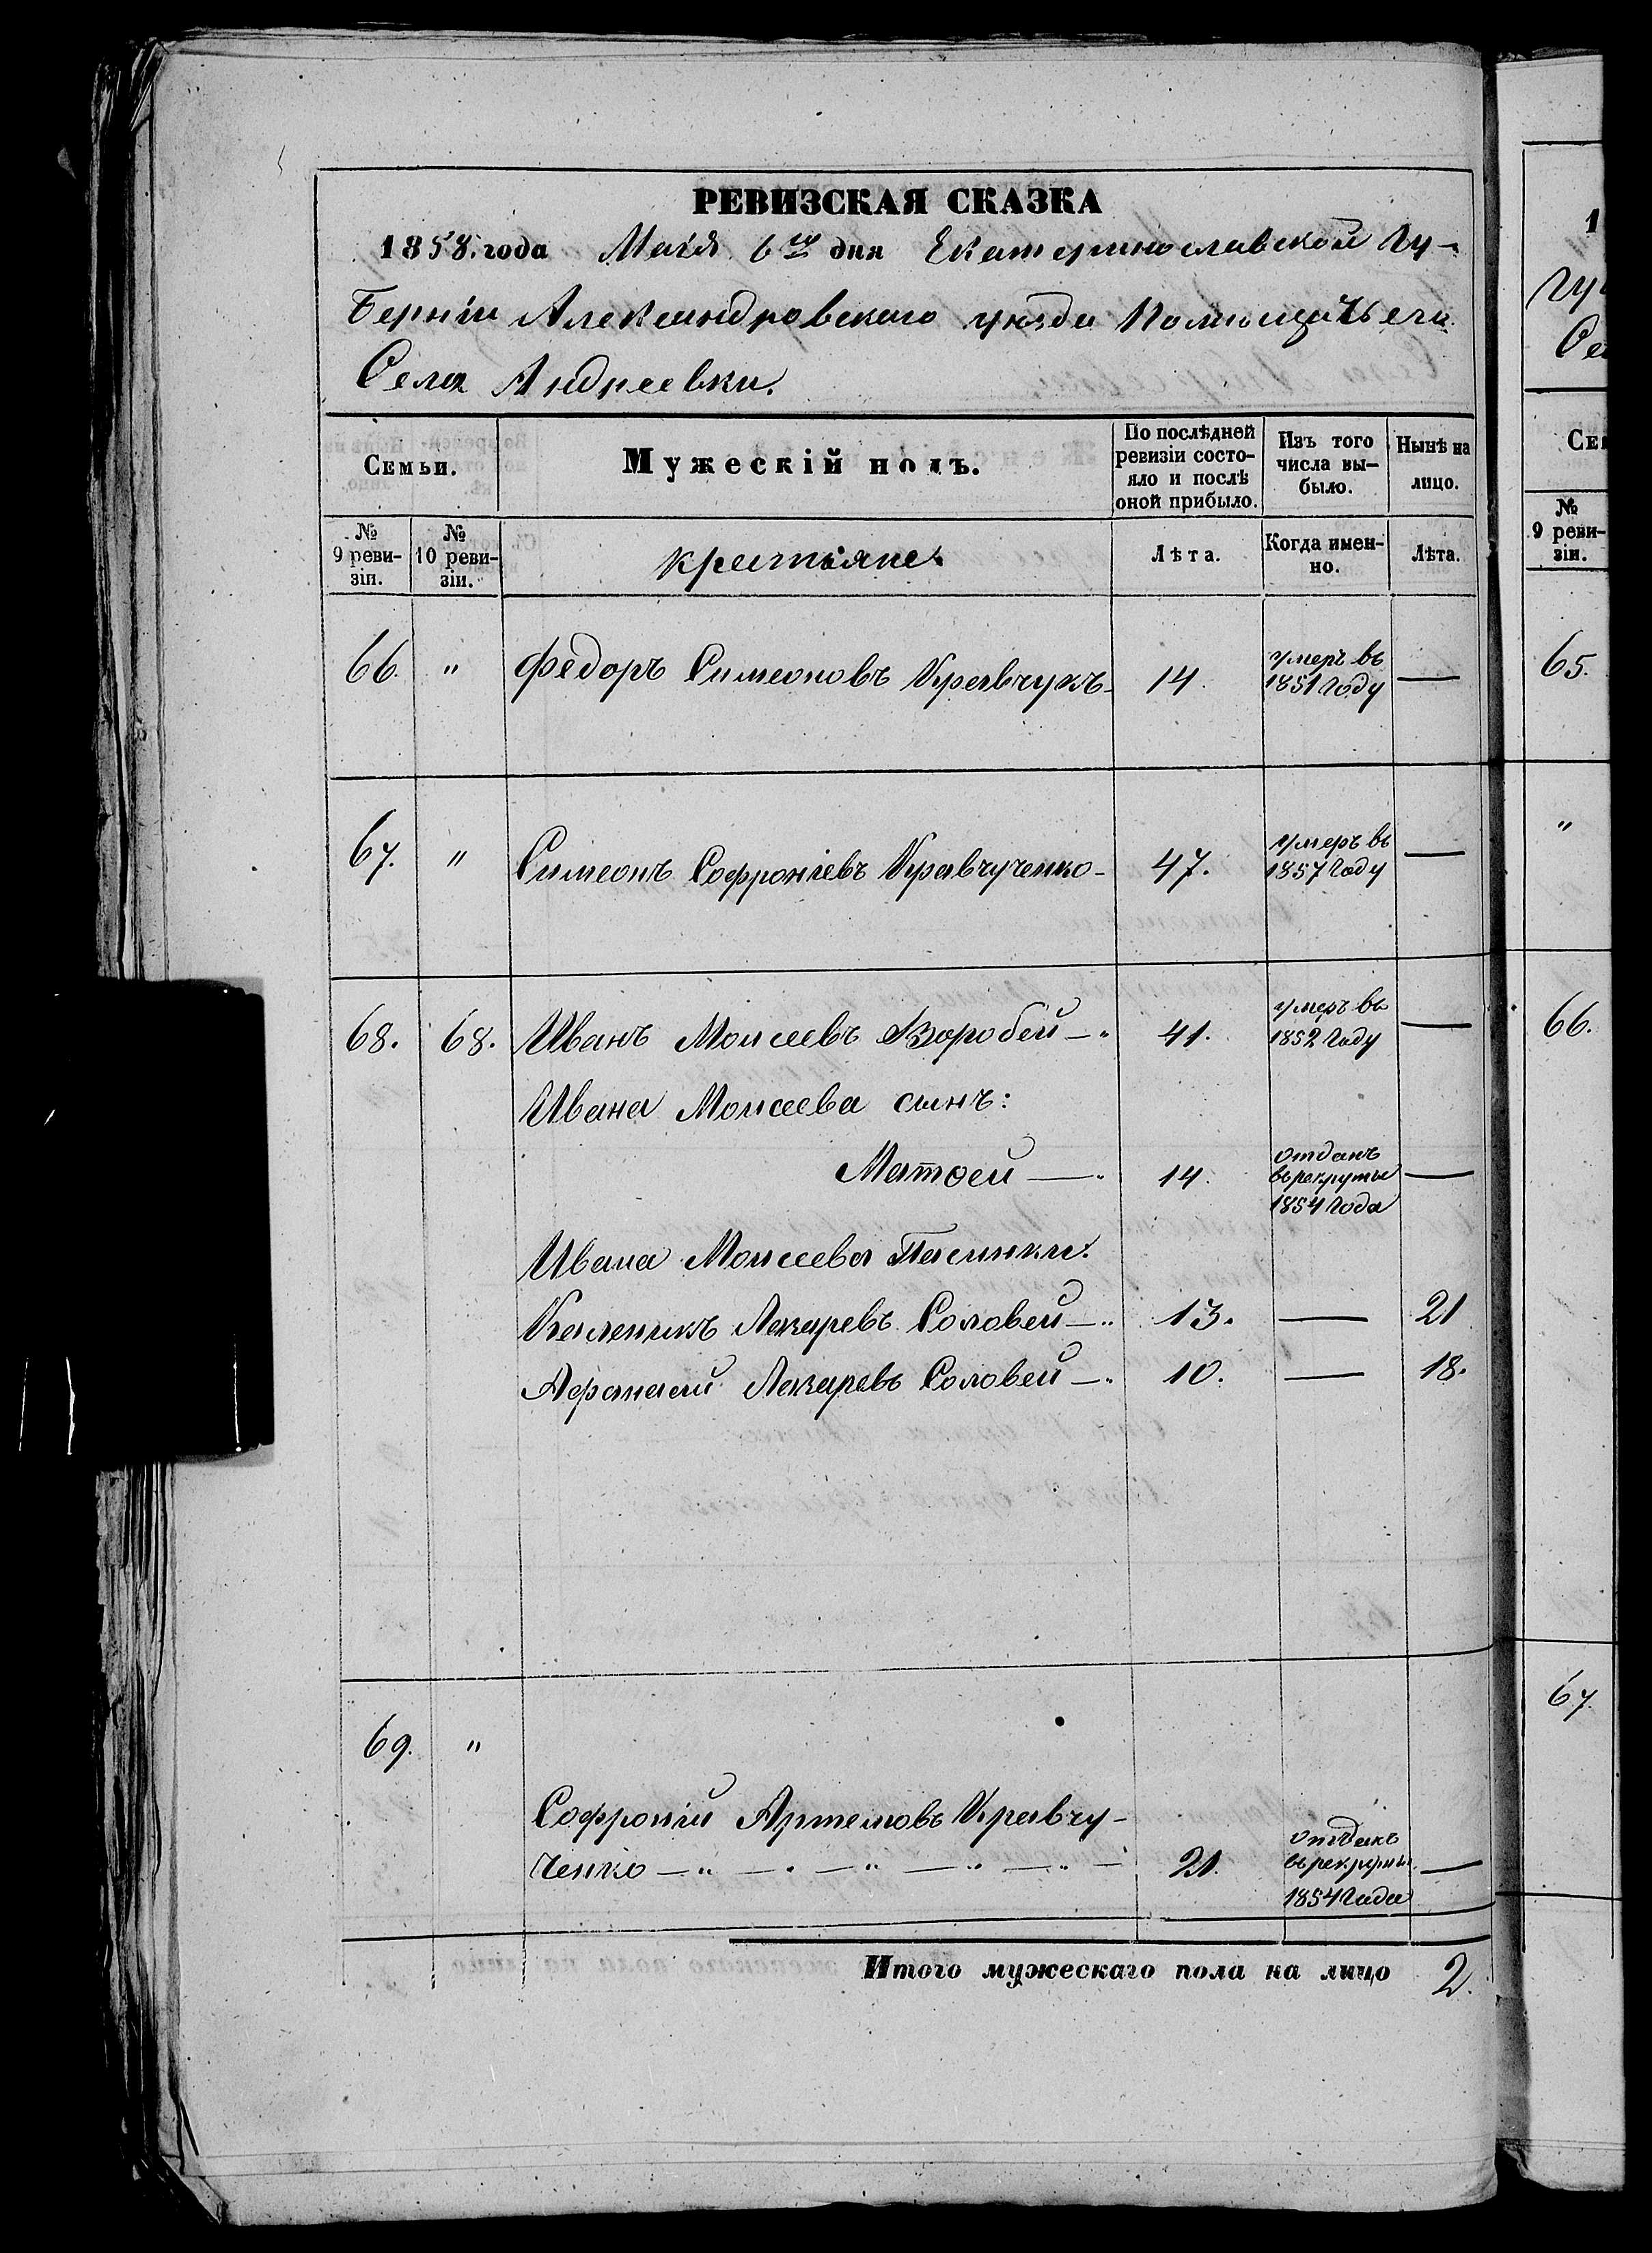 РЕВИЗСКАЯ СКАЗКА
1858. года Маія 6го дня Екатеринославской Гу-
берніи Александровскаго уѣзда Помѣщичьяго
Села Андреевки.
Семьи.
Мужескій полъ.
По послѣдней ревизіи состо-яло и послѣ оной прибыло.
Изъ того числа вы-было.
Нынѣ на лицо.
№ 9 реви-зіи.
№ 10 реви-зіи.
крестьяне.
Лѣта.
Когда имен-но.
Лѣта.
66. " Федоръ Симеоновъ Кравчукъ- 14. умеръ въ 1851 Году —
67. " Симеонъ Софроніевъ Кравчученко- 47. умеръ въ 1857 Году —
68. 68. Иванъ Моисеевъ Воробей — 41. умеръ въ 1852 Году —
Ивана Моисеева сынъ:
Матѳей — 14. отданъ въ рекруты 1854 Года —
Ивана Моисеева Пасынки:
Каленикъ Лазаревъ Соловей — 13. — 21
Афанасій Лазаревъ Соловей — 10. — 18.
69. "
Софроній Артемовъ Кравчу-
ченко — " — " — " — " — " — 21. отданъ въ рекруты 1854 Года —
Итого мужескаго пола на лицо 2.
1
Гу
Се
Се
№ 9 реви-зіи.
65.
"
66.
67.